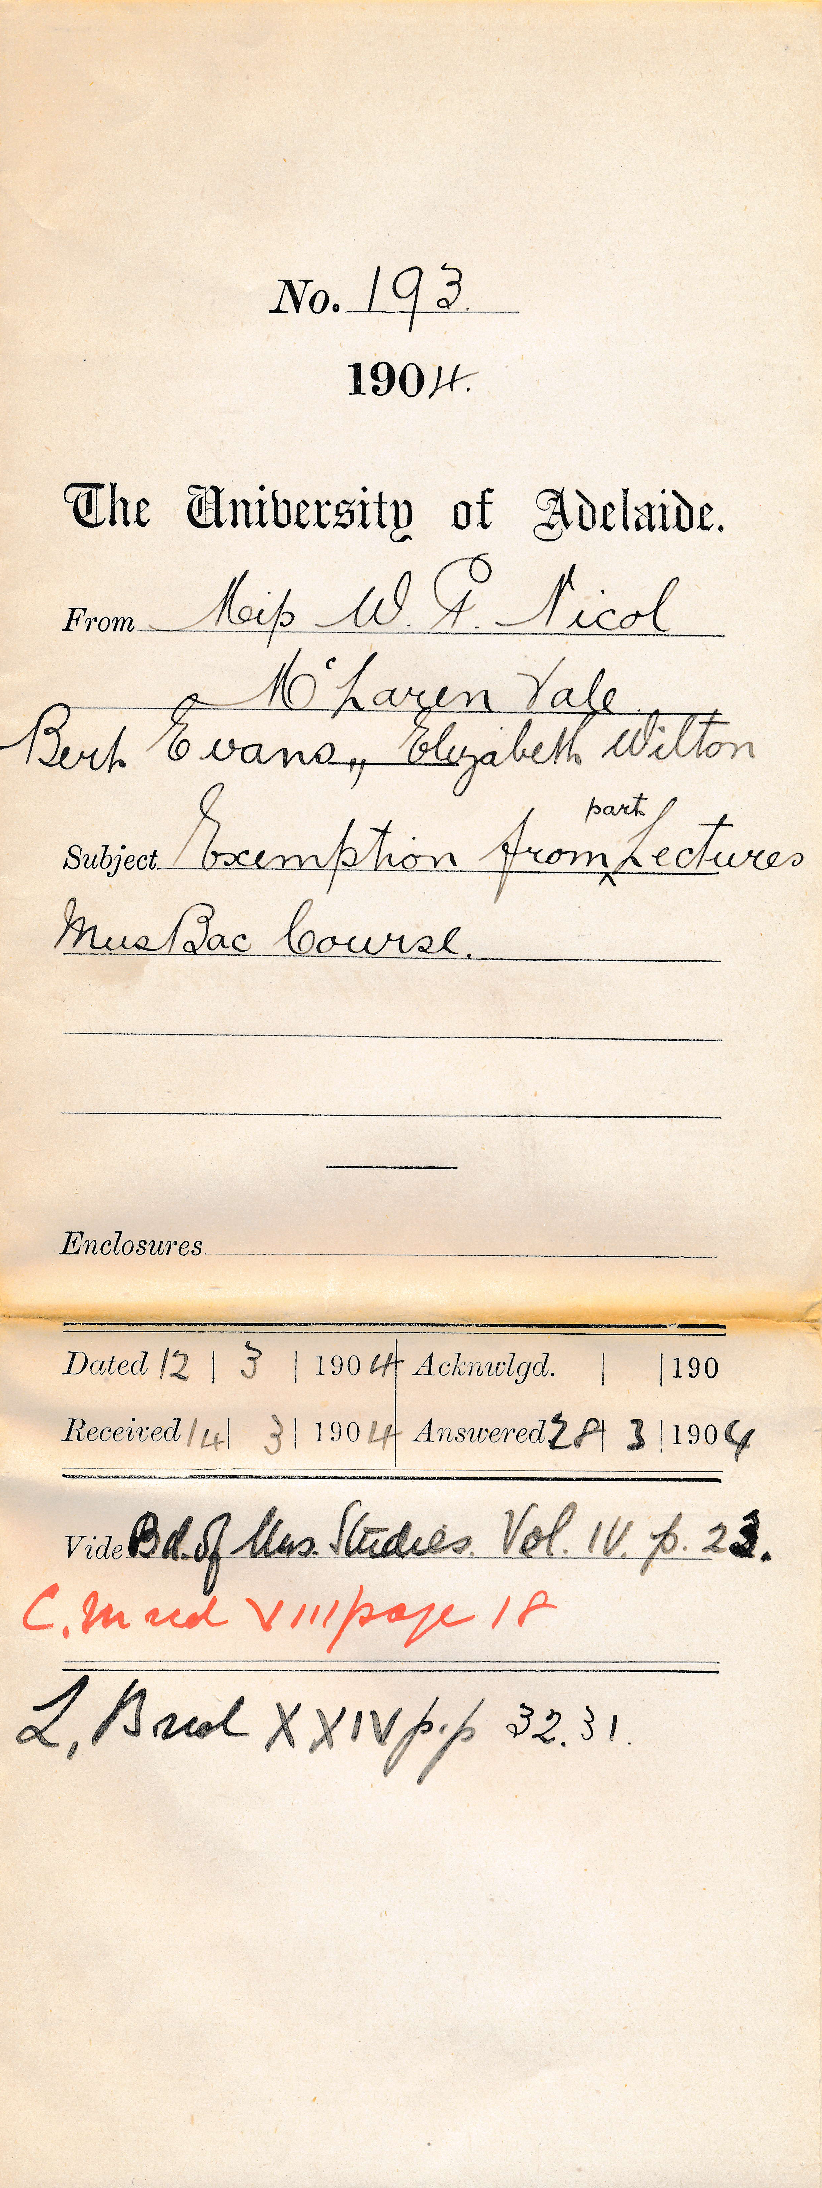 No. 193.
1904.
The University of Adelaide.
From Miss W. P. Nicol
McLaren Vale
Bert Evans,, Elizabeth Wilton
Subject Exemption from part Lectures
MusBac Course.
Enclosures
Dated 12 | 3 | 1904 Acknwlgd. | | 190
Received 14 | 3 | 1904 Answered 28 | 3 | 1904
Vide Bd. of Mus. Studies. Vol. IV. p. 23.
C. M red VIII page 18
L, B red XXIV p.p 32.31.